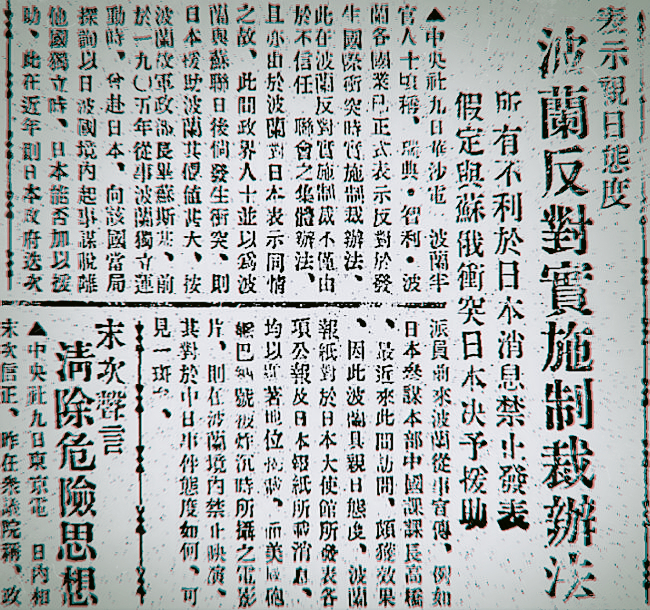 表示親日態度
波蘭反對實施制裁辦法
所有不利於日本消息禁止發表
假定與蘇俄衝突日本決予援助
▲中央社九日華沙電 波蘭半
官人士頃稱、瑞典·智利·波
蘭各國業已正式表示反對於發
生國際衝突時實施制裁辦法、
此在波蘭反對實施制裁不僅由
於不信任 聯會之集體辦法、
且亦由於波蘭對日本表示同情
之故、此間政界人士並以為波
蘭與蘇聯日後倘發生衝突、則
日本援助波蘭其價值甚大、按
波蘭故軍政部長畢蘇斯基、前
於一九〇五年從事波蘭獨立運
動時、曾赴日本、向該國當局
探詢以日波國境內起事謀脫離
他國獨立時、日本能否加以援
助、此在近年則日本政府迭次
派員前來波蘭從事宣傳、例如
日本參謀本部中國課課長高橋
、最近來此間訪問、頗獲效果
、因此波蘭具親日態度、波蘭
報紙對於日本大使館所發表各
項公報及日本報紙所載消息、
均以顯著地位刊載、而美國砲
艦巴納號被炸沉時所攝之電影
片、則在波蘭境內禁止映演、
其對於中日事件態度如何、可
見一斑
末次聲言
清除危險思想
▲中央社九日東京電 日內相
末次信正、昨在衆議院稱、政